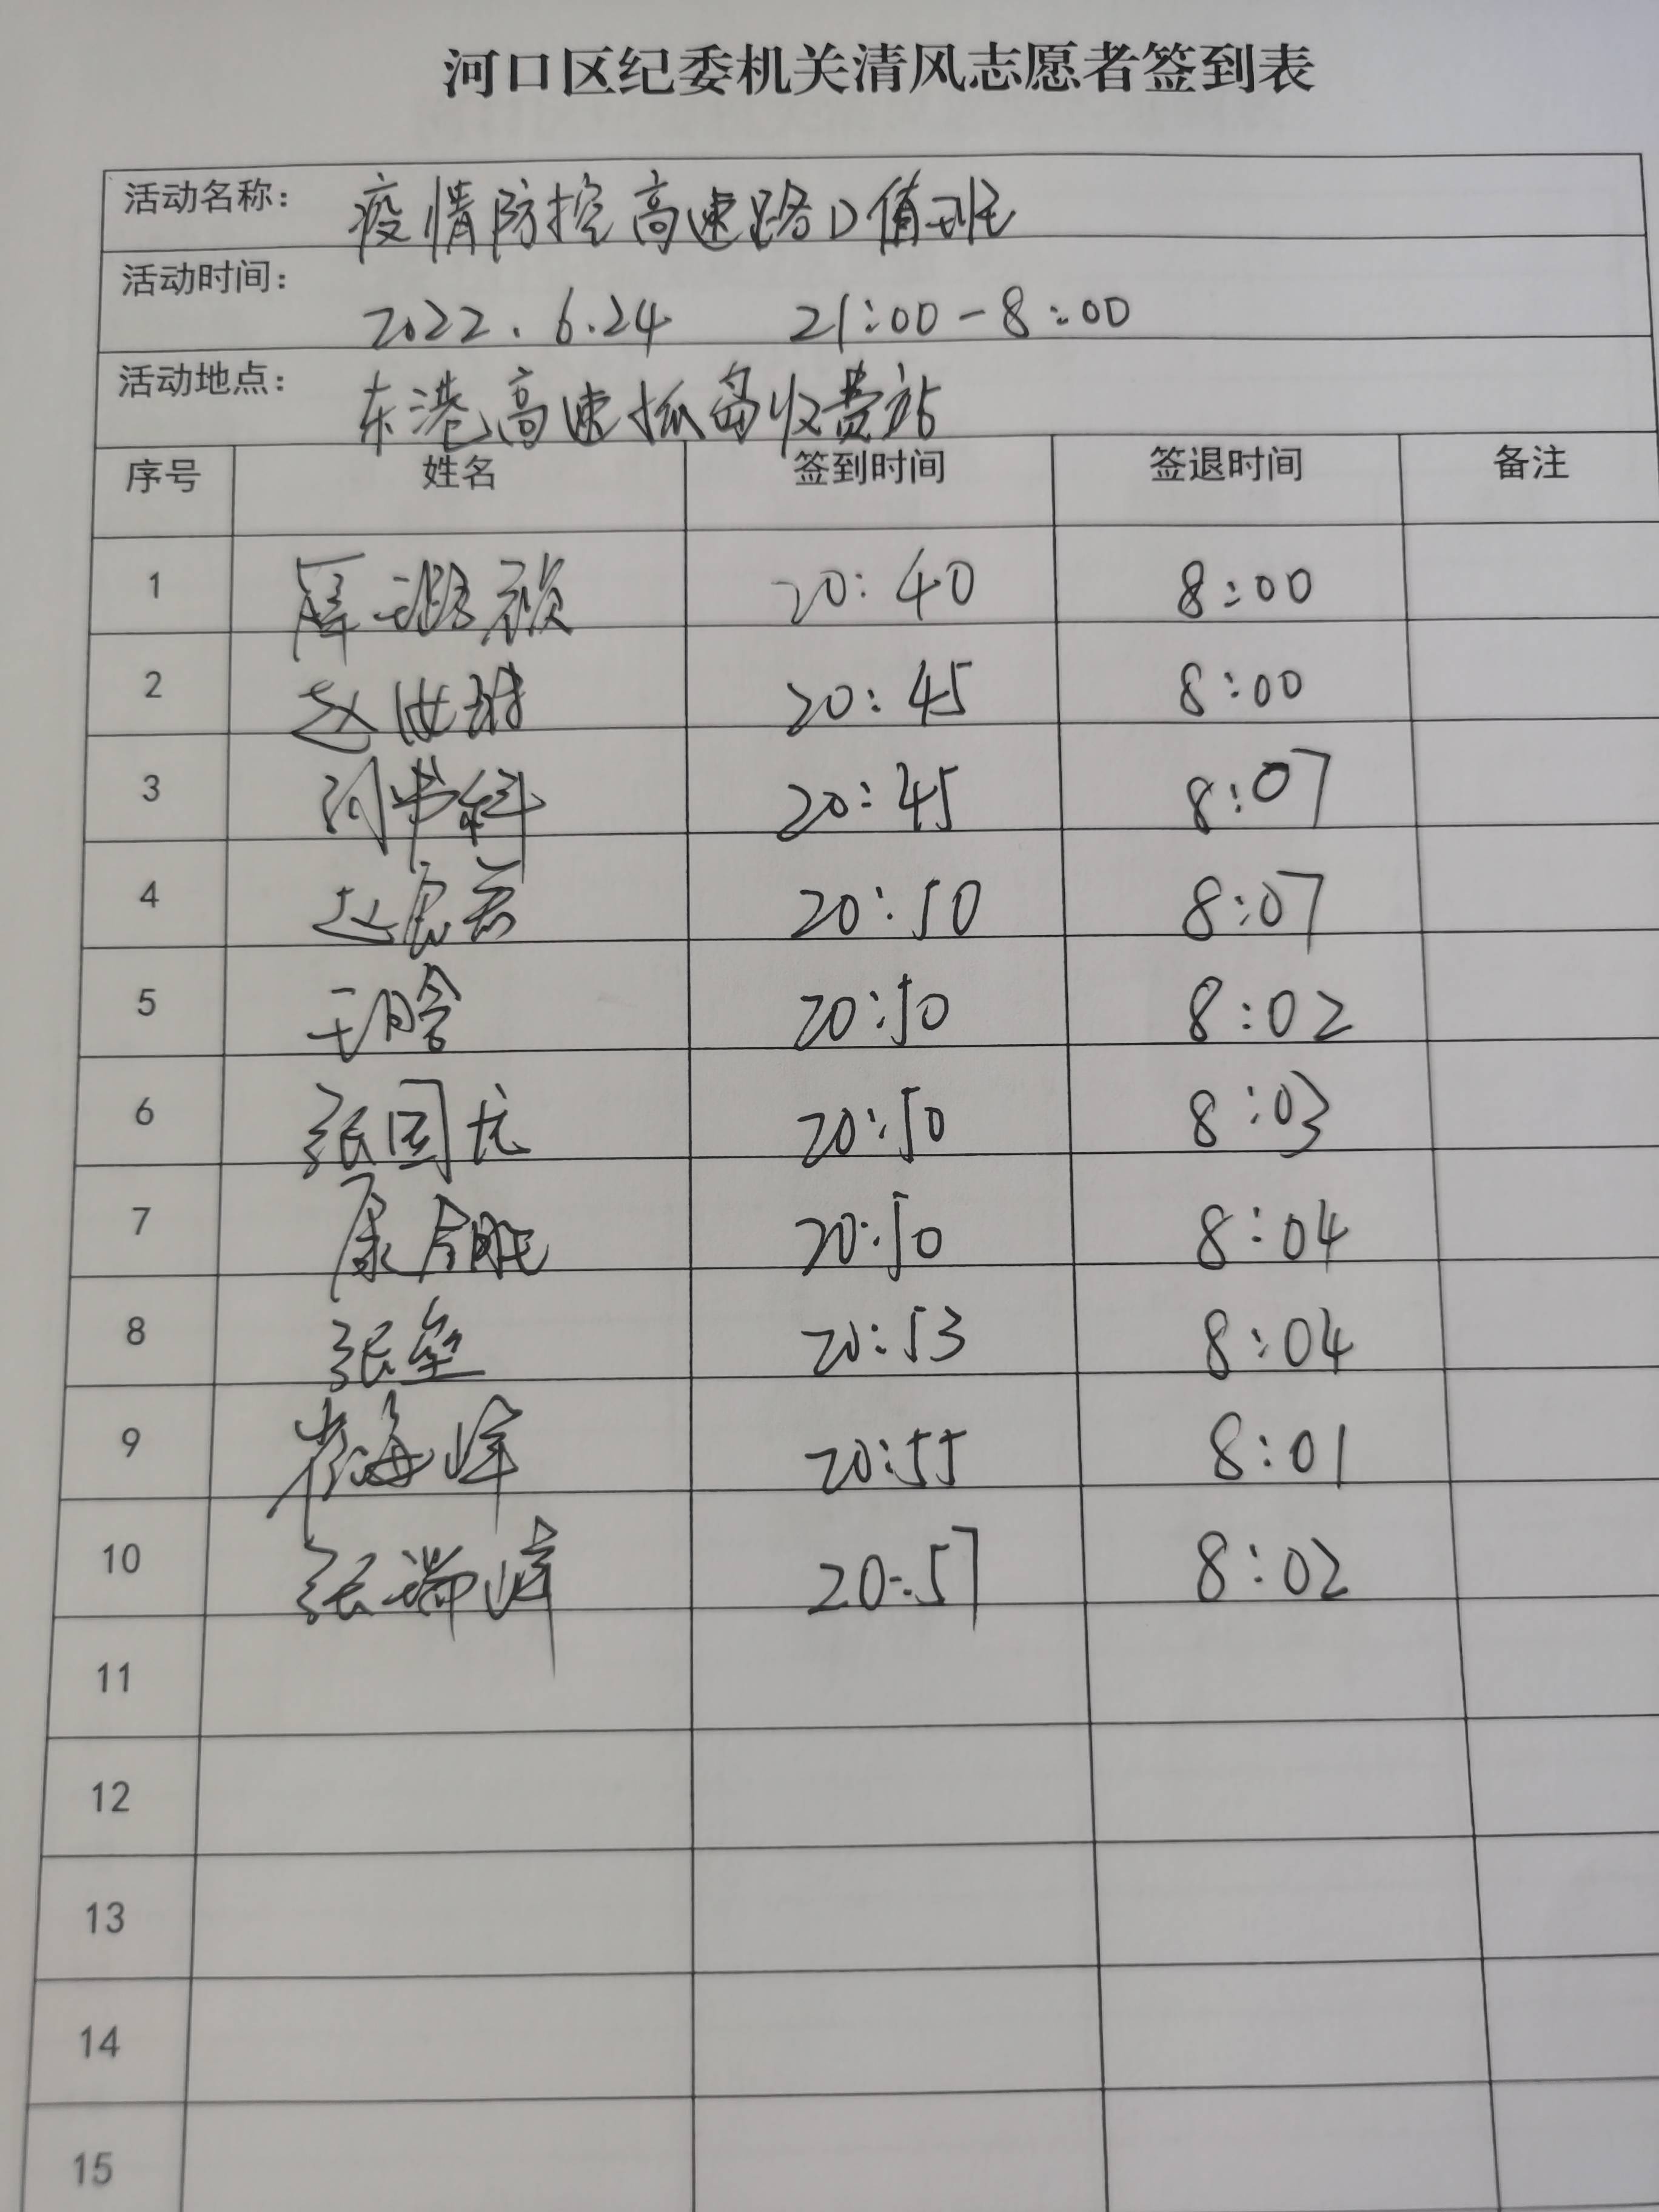 河口区纪委机关清风志愿者签到表
活动名称： 疫情防控高速路口值班
活动时间： 2022.6.24 21:00-8:00
活动地点： 东港高速孤岛收费站
序号 姓名 签到时间 签退时间 备注
1 20:40 8:00
2 赵 20:45 8:00
3 20:45 8:07
4 赵 20:50 8:07
5 王晗 20:50 8:02
6 张国龙 20:50 8:03
7 康 20:50 8:04
8 张垒 20:53 8:04
9 崔海峰 20:55 8:01
10 张瑞峰 20:57 8:02
11
12
13
14
15